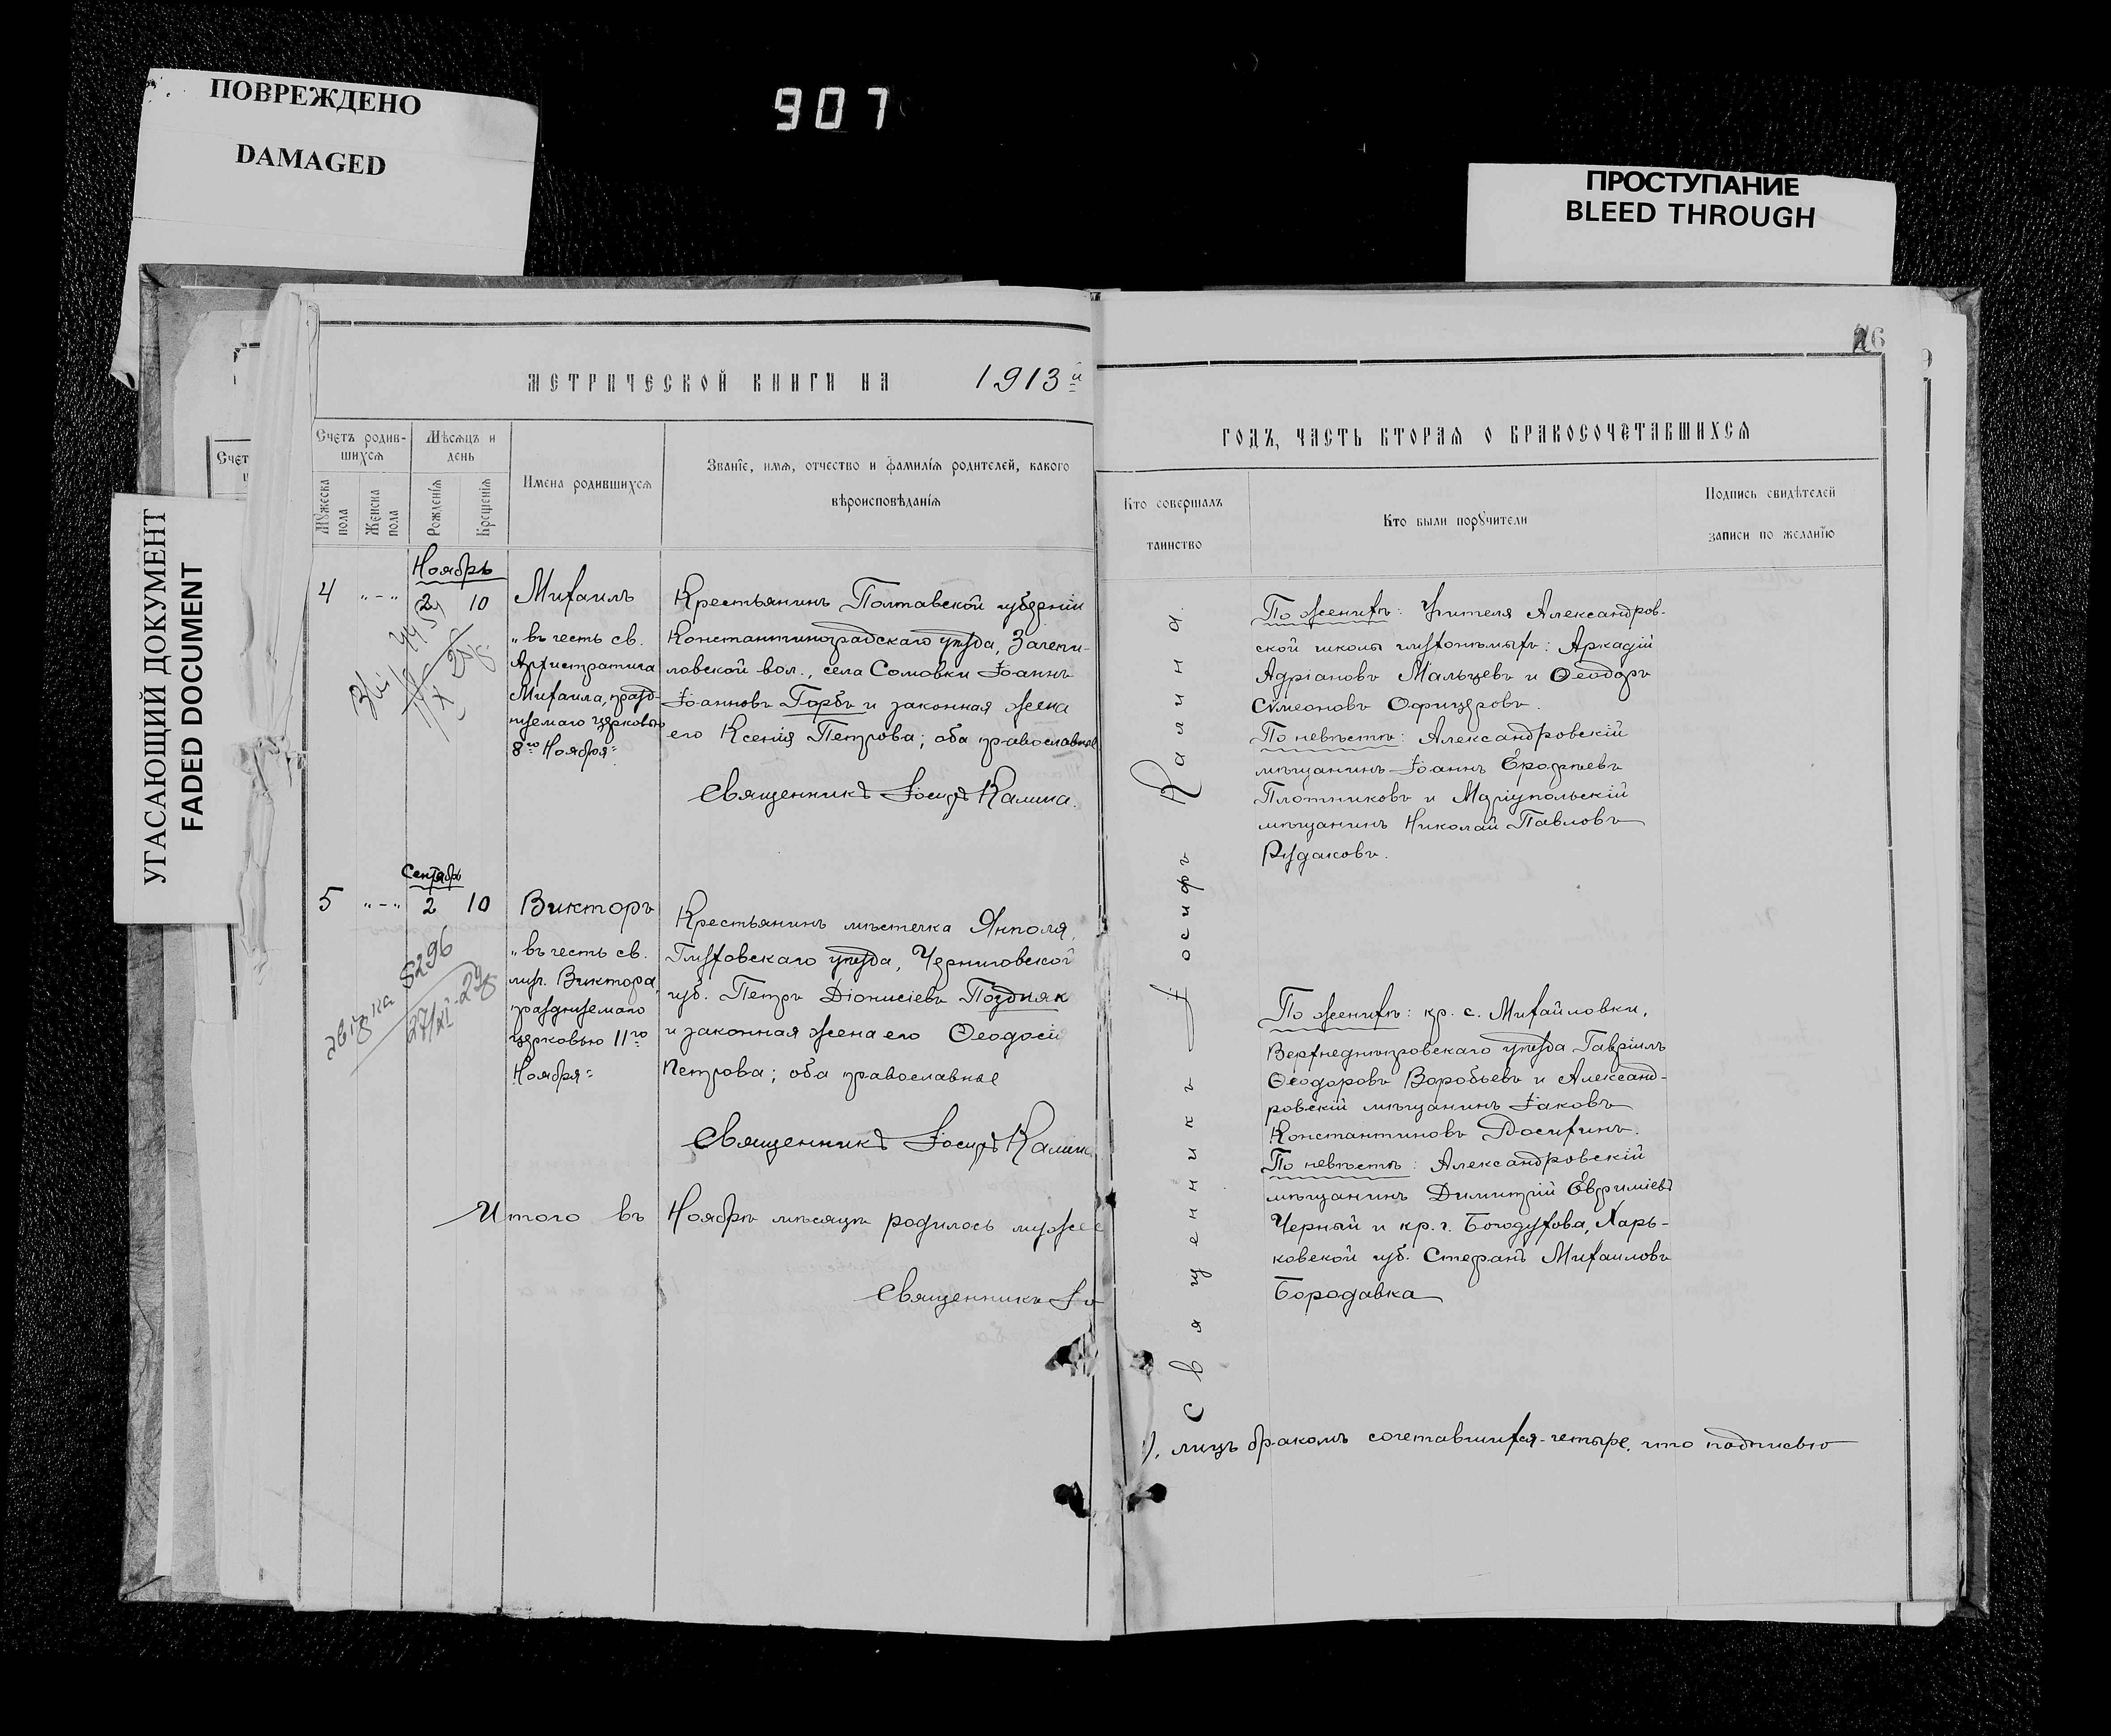 ПОВРЕЖДЕНО
DAMAGED
907
ПРОСТУПАНИЕ
BLEED THROUGH
УГАСАЮЩИЙ ДОКУМЕНТ
FADED DOCUMENT
МЕТРИЧЕСКОЙ КНИГИ НА 1913й
Счетъ родив-
шихся
Мѣсяцъ и
день
Имена родившихся
Званіе, имя, отчество и фамилія родителей, какого
вѣроисповѣданія
Мужеска
пола
Женска
пола
Рожденія
Крещенія
Ноябрь
4 „-„ 2 10 Михаилъ
„въ честь св.
Архистратига
Михаила, празд-
нуемаго церковью
8го Ноября=
Крестьянинъ Полтавской губерніи
Константиноградскаго уѣзда, Зачепи-
ловской вол., села Сомовки Іоаннъ
Іоанновъ Горбъ и законная жена
его Ксенія Петрова; оба православные
Священникъ Іосифъ Калина.
Сентябрь
5 „-„ 2 10 Викторъ
„въ честь св.
муч. Виктора,
празднуемаго
церковью 11го
Ноября=
8296
27/XI-29
Крестьянинъ мѣстечка Янполя,
Глуховскаго уѣзда, Черниговской
губ. Петръ Діонисіевъ Поздняк
и законная жена его Ѳеодосія
Петрова; оба православные
Священникъ Іосифъ Калин
Итого въ Ноябрѣ мѣсяцѣ родилось мужес
Священникъ Іо
6
ГОДЪ, ЧАСТЬ ВТОРАЯ О БРАКОСОЧЕТАВШИХСЯ
Кто совершалъ
таинство
Кто были поручители
Подпись свидѣтелей
записи по желанію
Священникъ Іосифъ Калина.
По женихѣ: Учителя Александров-
ской школы глухонѣмыхъ: Аркадій
Адріановъ Мальцевъ и Ѳеодоръ
Сѵмеоновъ Офицеровъ.
По невѣстѣ: Александровскій
мѣщанинъ Іоаннъ Ерофѣевъ
Плотниковъ и Маріупольскій
мѣщанинъ Николай Павловъ
Рудаковъ.
По женихѣ: кр. с. Михайловки,
Верхнеднѣпровскаго уѣзда Гавріилъ
Ѳеодоровъ Воробьевъ и Александ-
ровскій мѣщанинъ Іаковъ
Константиновъ Досихинъ.
По невѣстѣ: Александровскій
мѣщанинъ Димитрій Евѳиміевъ
Черный и кр. г. Богодухова, Харь-
ковской губ. Стефанъ Михаиловъ
Бородавка
лицъ бракомъ сочетавшихся-четыре, что подписью